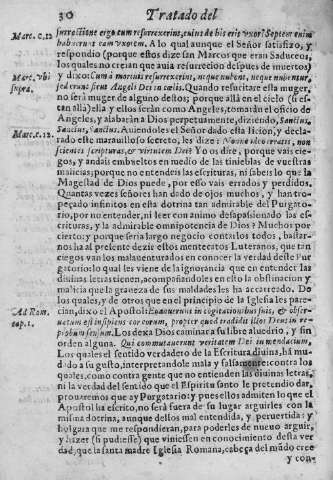 30 Tratado del
Marc. c. 12
surrectione ergo cum resurrexerint, cuius de his erit vxor? Septem enim
habuerunt eam vxorem. A lo qual aunque el Señor satisfizo, y
respondio (porque estos dize san Marcos que eran Saduceos,
los quales no creian que auia resurrecion despues de muertos)
Marc. vbi
supra.
y dixo: Cum a mortuis resurrexerint, neque nubent, neque nubentur,
sed erunt sicut Angeli Dei in cælis. Quando resucitare essa muger,
no será muger de alguno dellos; porque allà en el cielo (si es-
tan allà) ella y ellos serán como Angeles, tomarán el oficio de
Angeles, y alabarán a Dios perpetuamente, diziendo, Sanctus,
Marc. c. 12.
Sanctus, Sanctus. Auiendoles el Señor dado esta licion, y decla-
rado este marauilloso secreto, les dize: Nonne ideo erratis, non
scientes scripturas, nec virtutem Dei? Yo os dire, porque vais cie-
gos, y andais embueltos en medio de las tinieblas de vuestras
malicias; porque no entendeis las escrituras, ni sabeis lo que la
Magestad de Dios puede, por esso vais errados y perdidos.
Quantas vezes señores han dado de ojos muchos, y han tro-
peçado infinitos en esta dotrina tan admirable del Purgato-
rio, por no entender, ni leer con animo desapasionado las es-
crituras, y la admirable omnipotencia de Dios? Muchos por
cierto; y porque seria largo negocio contarlos todos, bastar-
nos ha al presente dezir estos mentecatos Luteranos, que tan
ciegos van los malauenturados en conocer la verdad deste Pur
gatorio: lo qual les viene de la ignorancia que en entender las
diuinas letras tienen, acompañandoles en esto la obstinacion y
malicia que la graueza de sus maldades les ha acarreado. De
los quales, y de otros que en el principio de la Iglesia les pare-
Ad Rom.
cap. 1.
cian, dixo el Apostol: Euanuerunt in cogitationibus suis, & obscu-
ratum est insipiens cor eorum, propter quod tradidit illos Deus in re-
probum sensum. Los dexa Dios caminar a su libre aluedrio, y sin
orden alguna. Qui commutauerunt veritatem Dei in mendacium.
Los quales el sentido verdadero de la Escritura diuina, há mu-
dado a su gusto, interpretandole mala y falsamente: contra los
quales, como contra gente que no entienden las diuinas letras,
ni la verdad del sentido que el Espiritu santo le pretendio dar,
prouaremos que ay Purgatorio: y puesto aqui primero lo que el
Apostol ha escrito, no será fuera de su lugar arguirles con la
misma dotrina, aunque dellos mal entendida, y peruertida: y
holgara que me respondieran, para poderles de nueuo arguir,
y hazer (si pudiesse) que viniessen en conocimiento desta ver
dad, que la santa madre Iglesia Romana, cabeça del mũdo cree
y con-